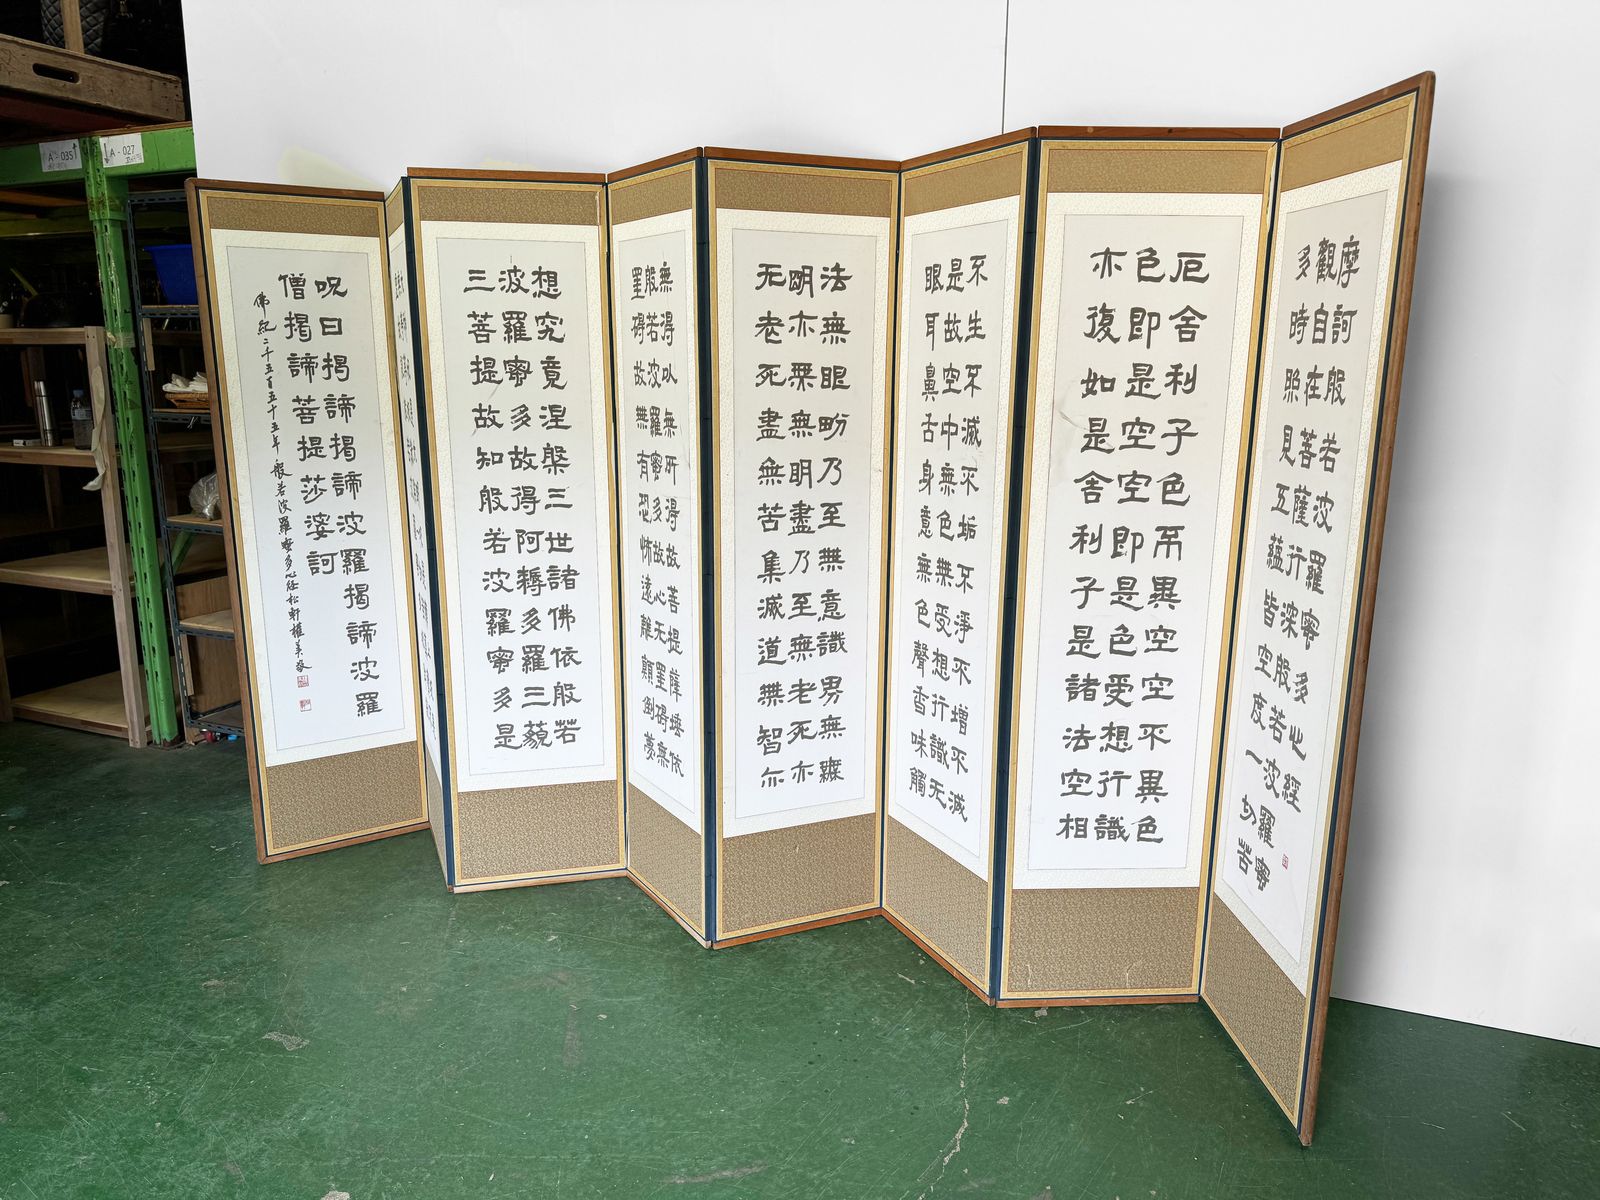 A-035
A-027
摩訶般若波羅蜜多心經
觀自在菩薩行深般若波羅蜜
多時照見五蘊皆空度一切苦
厄舍利子色不異空空不異色
色即是空空即是色受想行識
亦復如是舍利子是諸法空相
不生不滅不垢不淨不增不減
是故空中無色無受想行識无
眼耳鼻舌身意無色聲香味觸
法無眼界乃至無意識界無無
明亦無無明盡乃至無老死亦
无老死盡無苦集滅道無智亦
無得以無所得故菩提薩埵依
般若波羅蜜多故心无罣礙無
罣礙故無有恐怖遠離顛倒夢
想究竟涅槃三世諸佛依般若
波羅蜜多故得阿耨多羅三藐
三菩提故知般若波羅蜜多是
呪曰揭諦揭諦波羅揭諦波羅
僧揭諦菩提莎婆訶
佛紀二千五百五十五年 般若波羅蜜多心經 松軒 權美敬